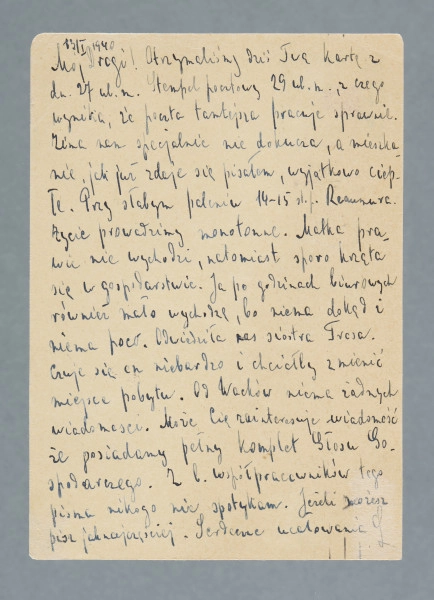 13/I 1940
Mój Drogi! Otrzymaliśmy dziś Twą kartę z
dn. 27 ub. m. Stempel pocztowy 29 ub. m. z czego
wynika, że poczta tamtejsza pracuje sprawnie.
Zima nam specjalnie nie dokucza, a mieszka-
nie, jak już zdaje się pisałem, wyjątkowo ciep-
łe. Przy słabym paleniu 14-15 st. p. Reaumura.
Życie prowadzimy monotonne. Matka pra-
wie nie wychodzi, natomiast sporo krząta
się w gospodarstwie. Ja po godzinach biurowych
również mało wychodzę, bo niema dokąd i
niema poco. Odwiedziła nas siostra
Czuje się on niebardzo i chciałby zmienić
miejsce pobytu. Od Wacków niema żadnych
wiadomości. Może Cię zainteresuje wiadomość
że posiadamy pełny komplet Głosu Go-
spodarczego. Z b. współpracowników tego
pisma nikogo nie spotykam. Jeżeli możesz
pisz jaknajczęściej. Serdeczne ucałowania